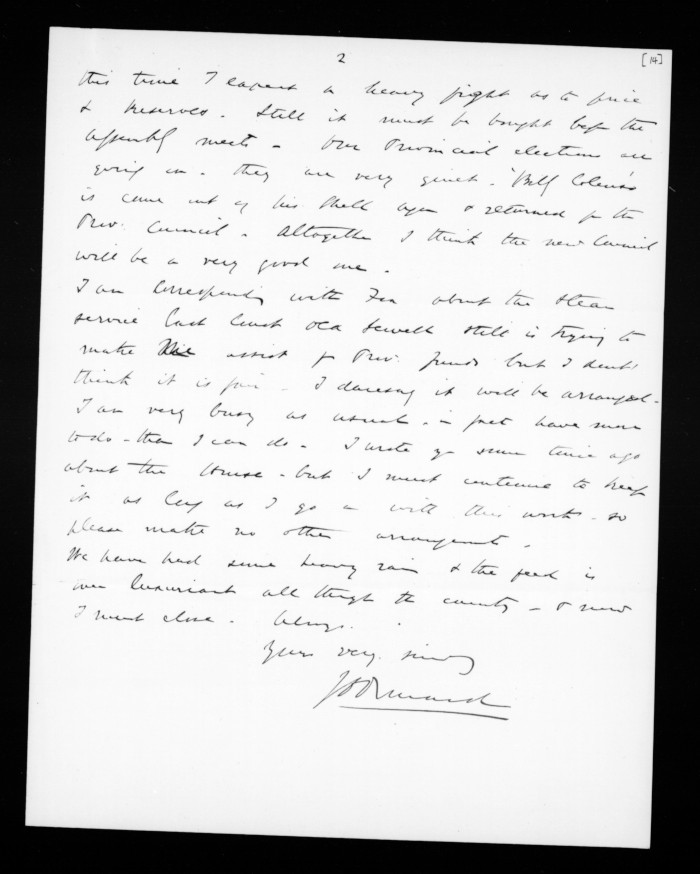 2
[14]
this time I expect a heavy fight as to price
& Reserves. Still it must be bought before the
Assembly meets - Our Provincial elections are
going on - they are very quiet - "Bill" Colenso
is come out of his shell again & returned for the
Prov. Council - Altogether I think the new Council
will be a very good one.
I am Corresponding with Fox about the Steam
service East Coast Sewell still is trying to
make assist fr Prov. funds but I don't
think it is fair - I daresay it will be arranged -
I am very busy as usual - in fact have more
to do - than I can do - I wrote you some time ago
about the House - but I must continue to keep
it as long as I go on with this work - so
please make no other arrangements.
We have had some heavy rain & the feed is
over luxuriant all through the country - & now
I must close. Always.
Yours very sincerely
J D Ormond